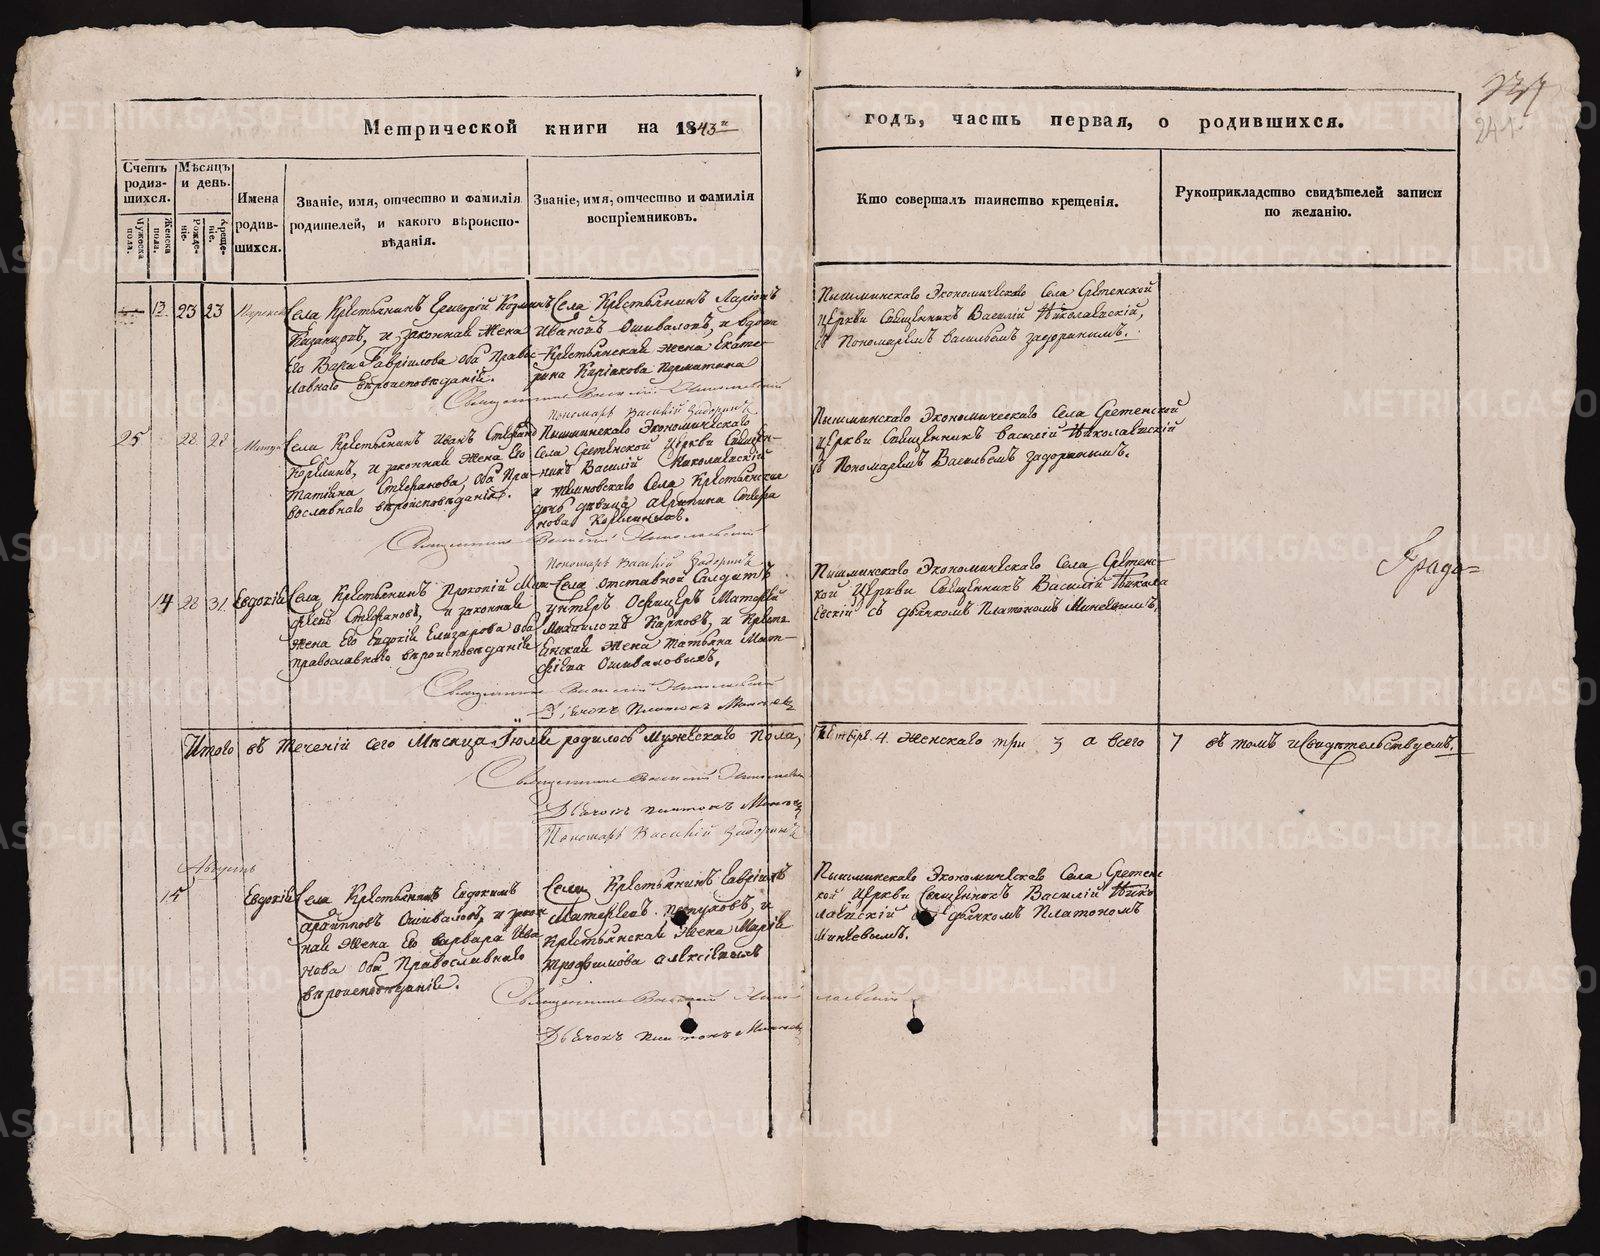 Метрической книги на 1843 годъ, часть первая, о родившихся.
241.
Счетъ родив-шихся.
Мѣсяцъ и день.
Мужеска пола.
Женска пола.
Рожде-ніе.
Креще-ніе.
Имена родив-шихся.
Званіе, имя, отчество и фамилія родителей, и какого вѣроиспо-вѣданія.
Званіе, имя, отчество и фамилія воспріемниковъ.
Кто совершалъ таинство крещенія.
Рукоприкладство свидѣтелей записи по желанію.
13 23 23
Села Крестьянинъ Григорій
Казанцовъ, и законная жена
Его Вара Гавріилова оба Правос-
лавнаго вѣроисповѣданія.
Села Крестьянинъ Ларіонъ
Ивановъ Ошиваловъ, и вдова
Крестьянская жена Екате-
рина Киріакова
Священникъ Василій Николаевскій
Пономарь Василій Задоринъ
Пышминскаго Экономическаго Села Сретенской
Церкви Священникъ Василій Николаевскій,
съ Пономаремъ Васильемъ Задоринымъ.
25 28 28
Села Крестьянинъ Иванъ Стефанов
Корелинъ, и законная жена Его
Татіана Стефанова, оба Пра-
вославнаго вѣроисповѣданія.
Пышминскаго Экономическаго
Села Сретенской Церкви Священ-
никъ Василій Николаевскій
и Села Крестьянская
дочь девица Стефа
нова Корелиныхъ.
Священникъ Василій Николаевскій
Пономарь Василій Задоринъ
Пышминскаго Экономическаго Села Сретенской
Церкви Священникъ Василій Николаевскій
съ Пономаремъ Васильемъ Задоринымъ.
14 28 31 Евдокія
Села Крестьянинъ Прокопій Мат-
фѣевъ Стефановъ, и законная
жена Его Евдокія Елизарова оба
православнаго вѣроисповѣданія
Села отставной Салдатъ
унтеръ Офицеръ Матфей
Михайловъ Карповъ, и Кресть
янская жена Татьяна Мат-
фіева Ошиваловыхъ.
Священникъ Василій Николаевскій
Дьячокъ Платонъ Минеевъ
Пышминскаго Экономическаго Села Сретенс-
кой Церкви Священникъ Василій Никола
евскій съ дьячкомъ Платономъ Минеевымъ.
Градо=
Итого въ теченіи сего Мѣсяца Іюля родилось мужескаго пола, Четыре. 4 женскаго три 3 а всего 7 въ томъ и Свидѣтельствуемъ.
Священникъ Василій Николаевскій
Дьячокъ Платонъ Минеевъ
Пономарь Василій Задоринъ
Августъ
15 Евдокія
Села Крестьянинъ Евдокимъ
Ошиваловъ, и закон
ная жена Его Варвара Ива
нова Оба Православнаго
вѣроисповѣданія.
Села Крестьянинъ Гавріилъ
Матфеевъ Петуховъ, и
Крестьянская жена Марія
Трофимова Алексіевыхъ
Священникъ Василій Николаевскій
Дьячокъ Платонъ Минеевъ
Пышминскаго Экономическаго Села Сретенс
кой Церкви Священникъ Василій Нико
лаевскій съ дьячкомъ Платономъ
Минеевымъ.
METRIKI.GASO-URAL.RU